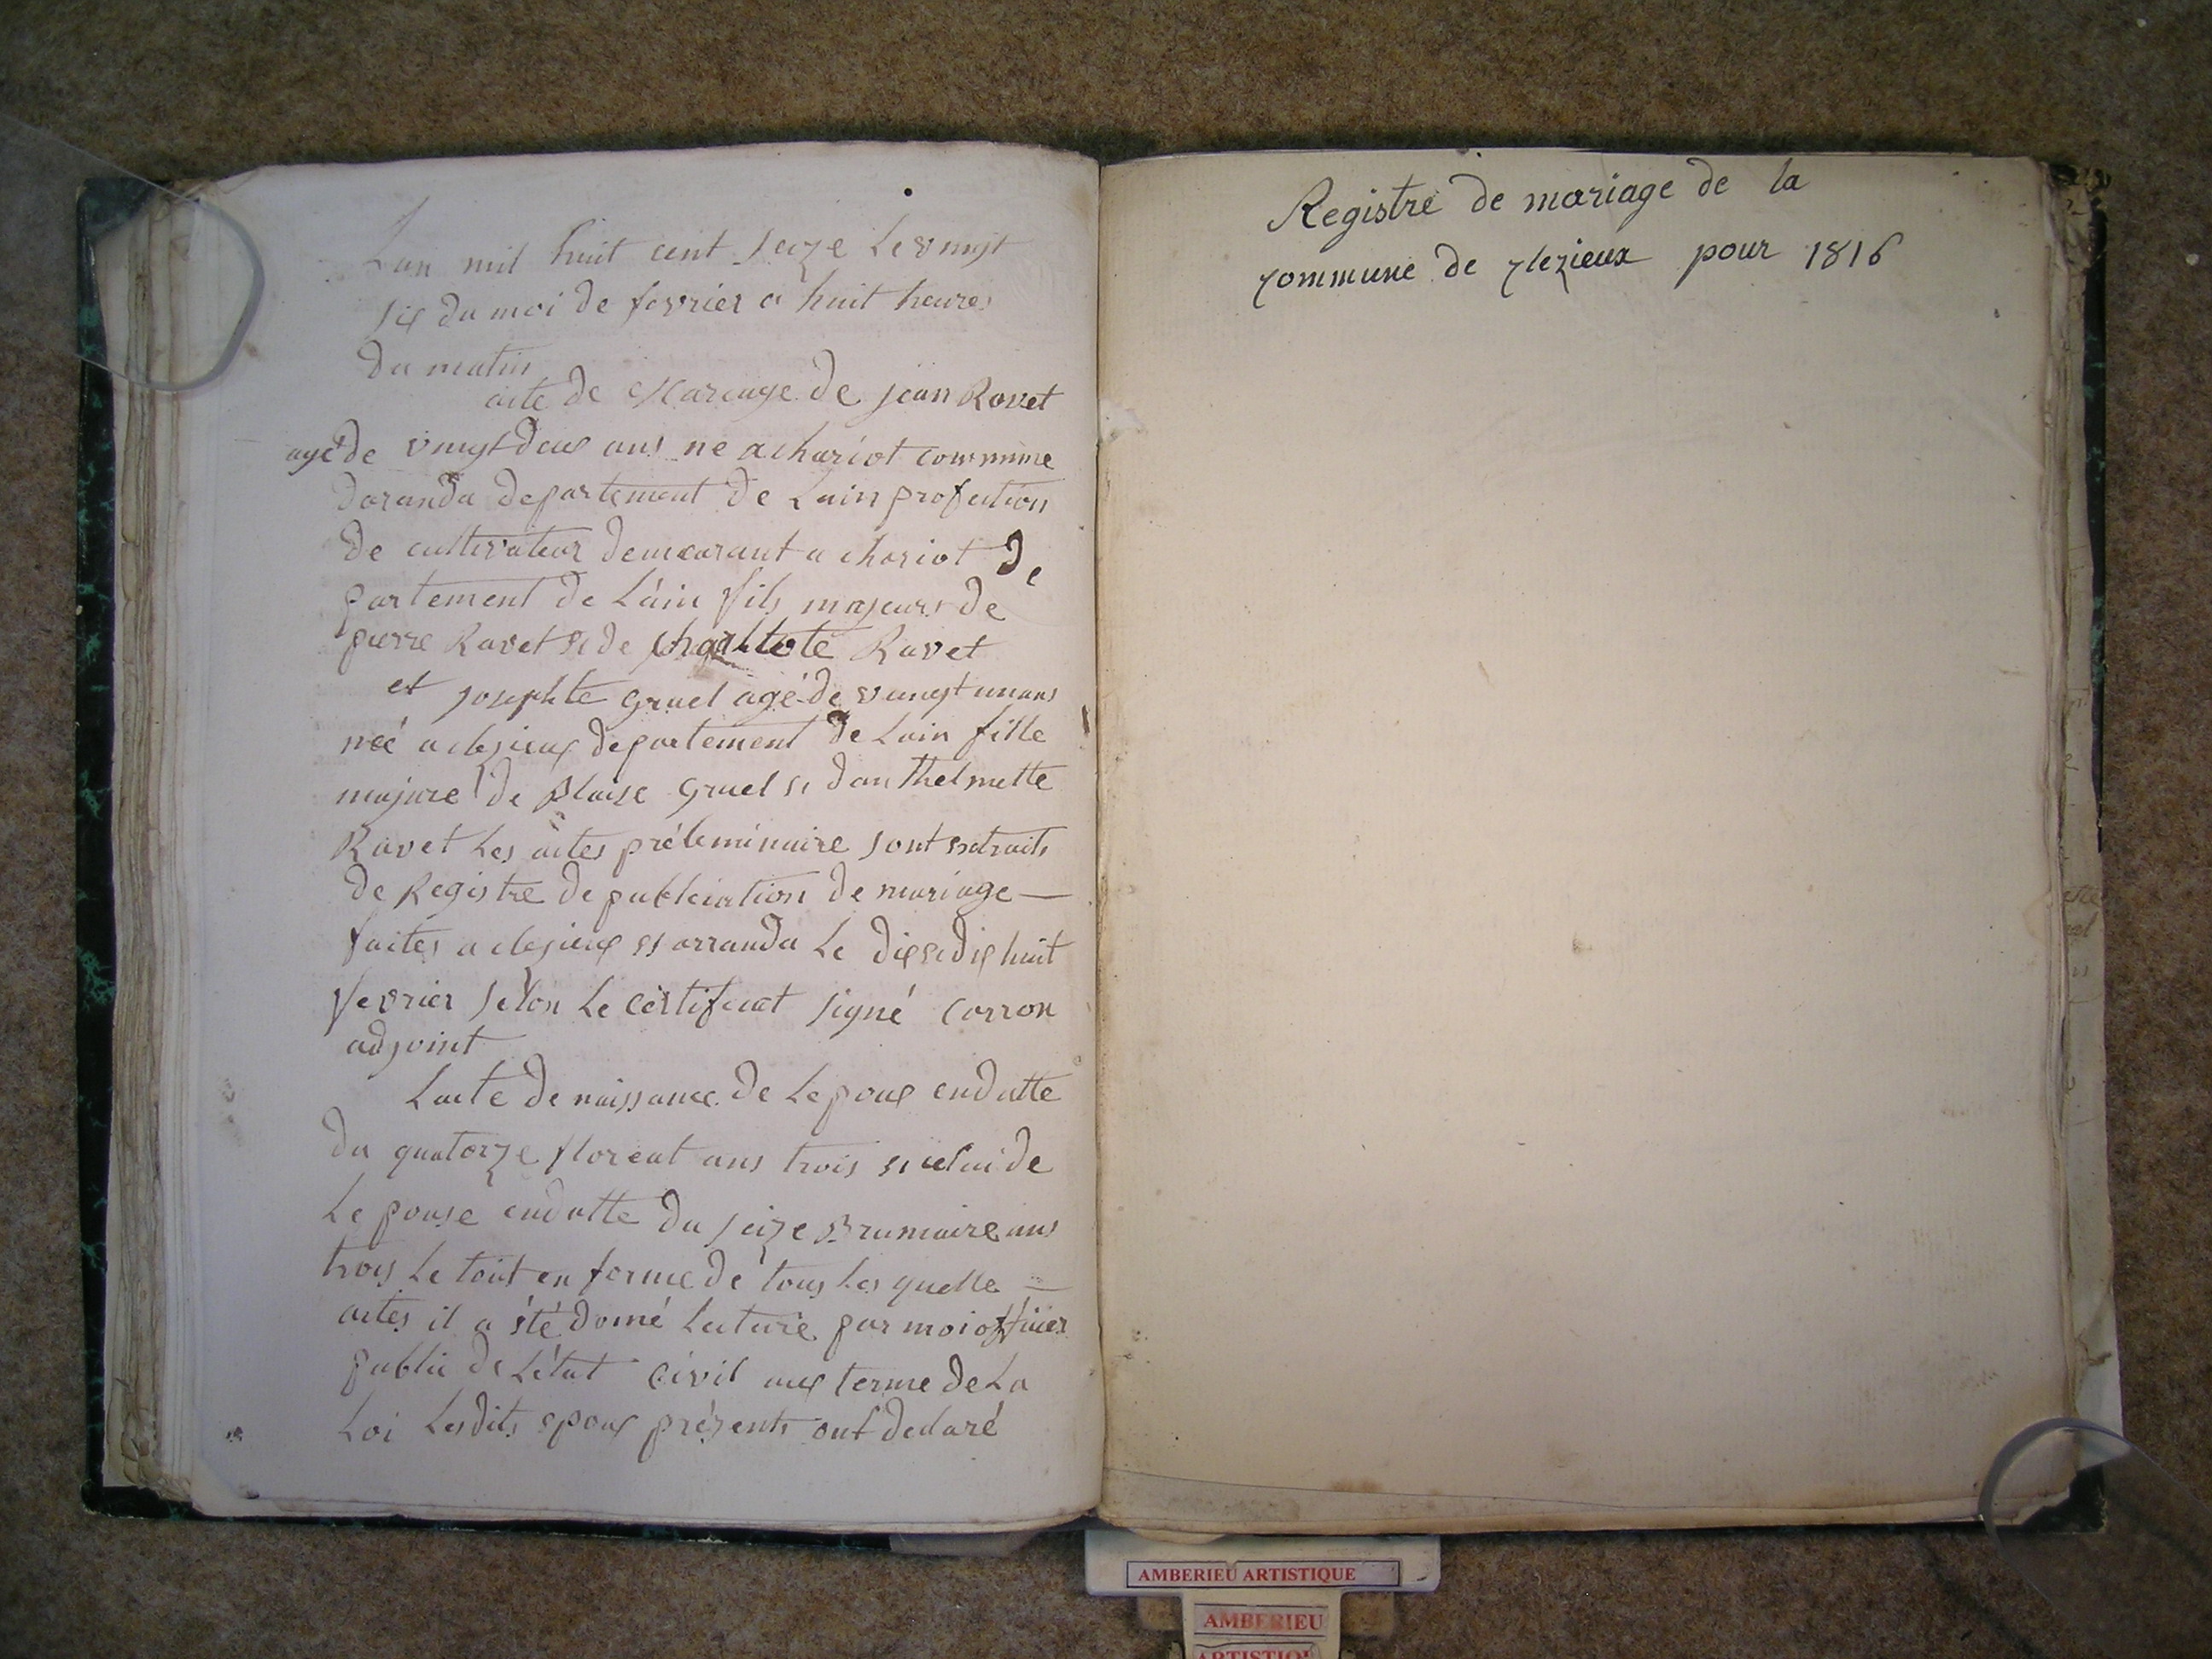 Lan mil huit cent seize Le vingt
six du moi de fevrier a huit heures
du matin
acte de Mariage de jean Ravet
agé de vingt deux ans ne a chariot commune
daranda departement de Lain profection
de cultivateur demeurant a chariot de
partement de Lain fils majeurs de
pierre Ravet et de Ravet
et josephte gruel agé de vungt un ans
néé a clezieux departement de Lain fille
majure de Blaise gruel et danthelmette
Ravet Les actes préleminaire sont extraits
de Registre de publication de mariage —
faites a clezieux et arranda Le dix et dix huit
fevrier selon Le certificat signé Carron
adjoint
Lacte de naissance de Lepoux endatte
du quatorze floreal ans trois et celui de
Lepouse endatte du seize Brumaire ans
trois Le tout en forme de tous Les quelle —
actes il a été donné Lecture par moi officier
public de Létat civil aux terme de La
Loi Lesdits epoux présents ont declaré
Registre de mariage de la
commune de clezieux pour 1816
AMBERIEU ARTISTIQUE
AMBERIEU
ARTISTIQU